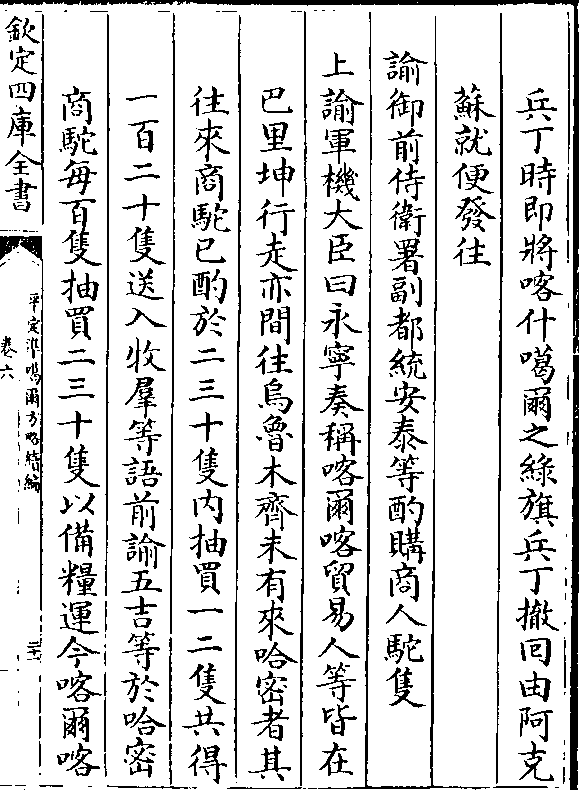 兵丁時即將喀什噶爾之綠旗兵丁撤回由阿克
蘇就便發往
諭御前侍衛署副都統安泰等酌購商人駝隻
上諭軍機大臣曰永寧奏稱喀爾喀貿易人等皆在
巴里坤行走亦間往烏魯木齊未有來哈密者其
往來商駝已酌於二三十隻内抽買一二隻共得
一百二十隻送入收羣等語前諭五吉等於哈密
商駝每百隻抽買二三十隻以備糧運今喀爾喀
欽定四庫全書
平定準噶爾方略續編
卷六